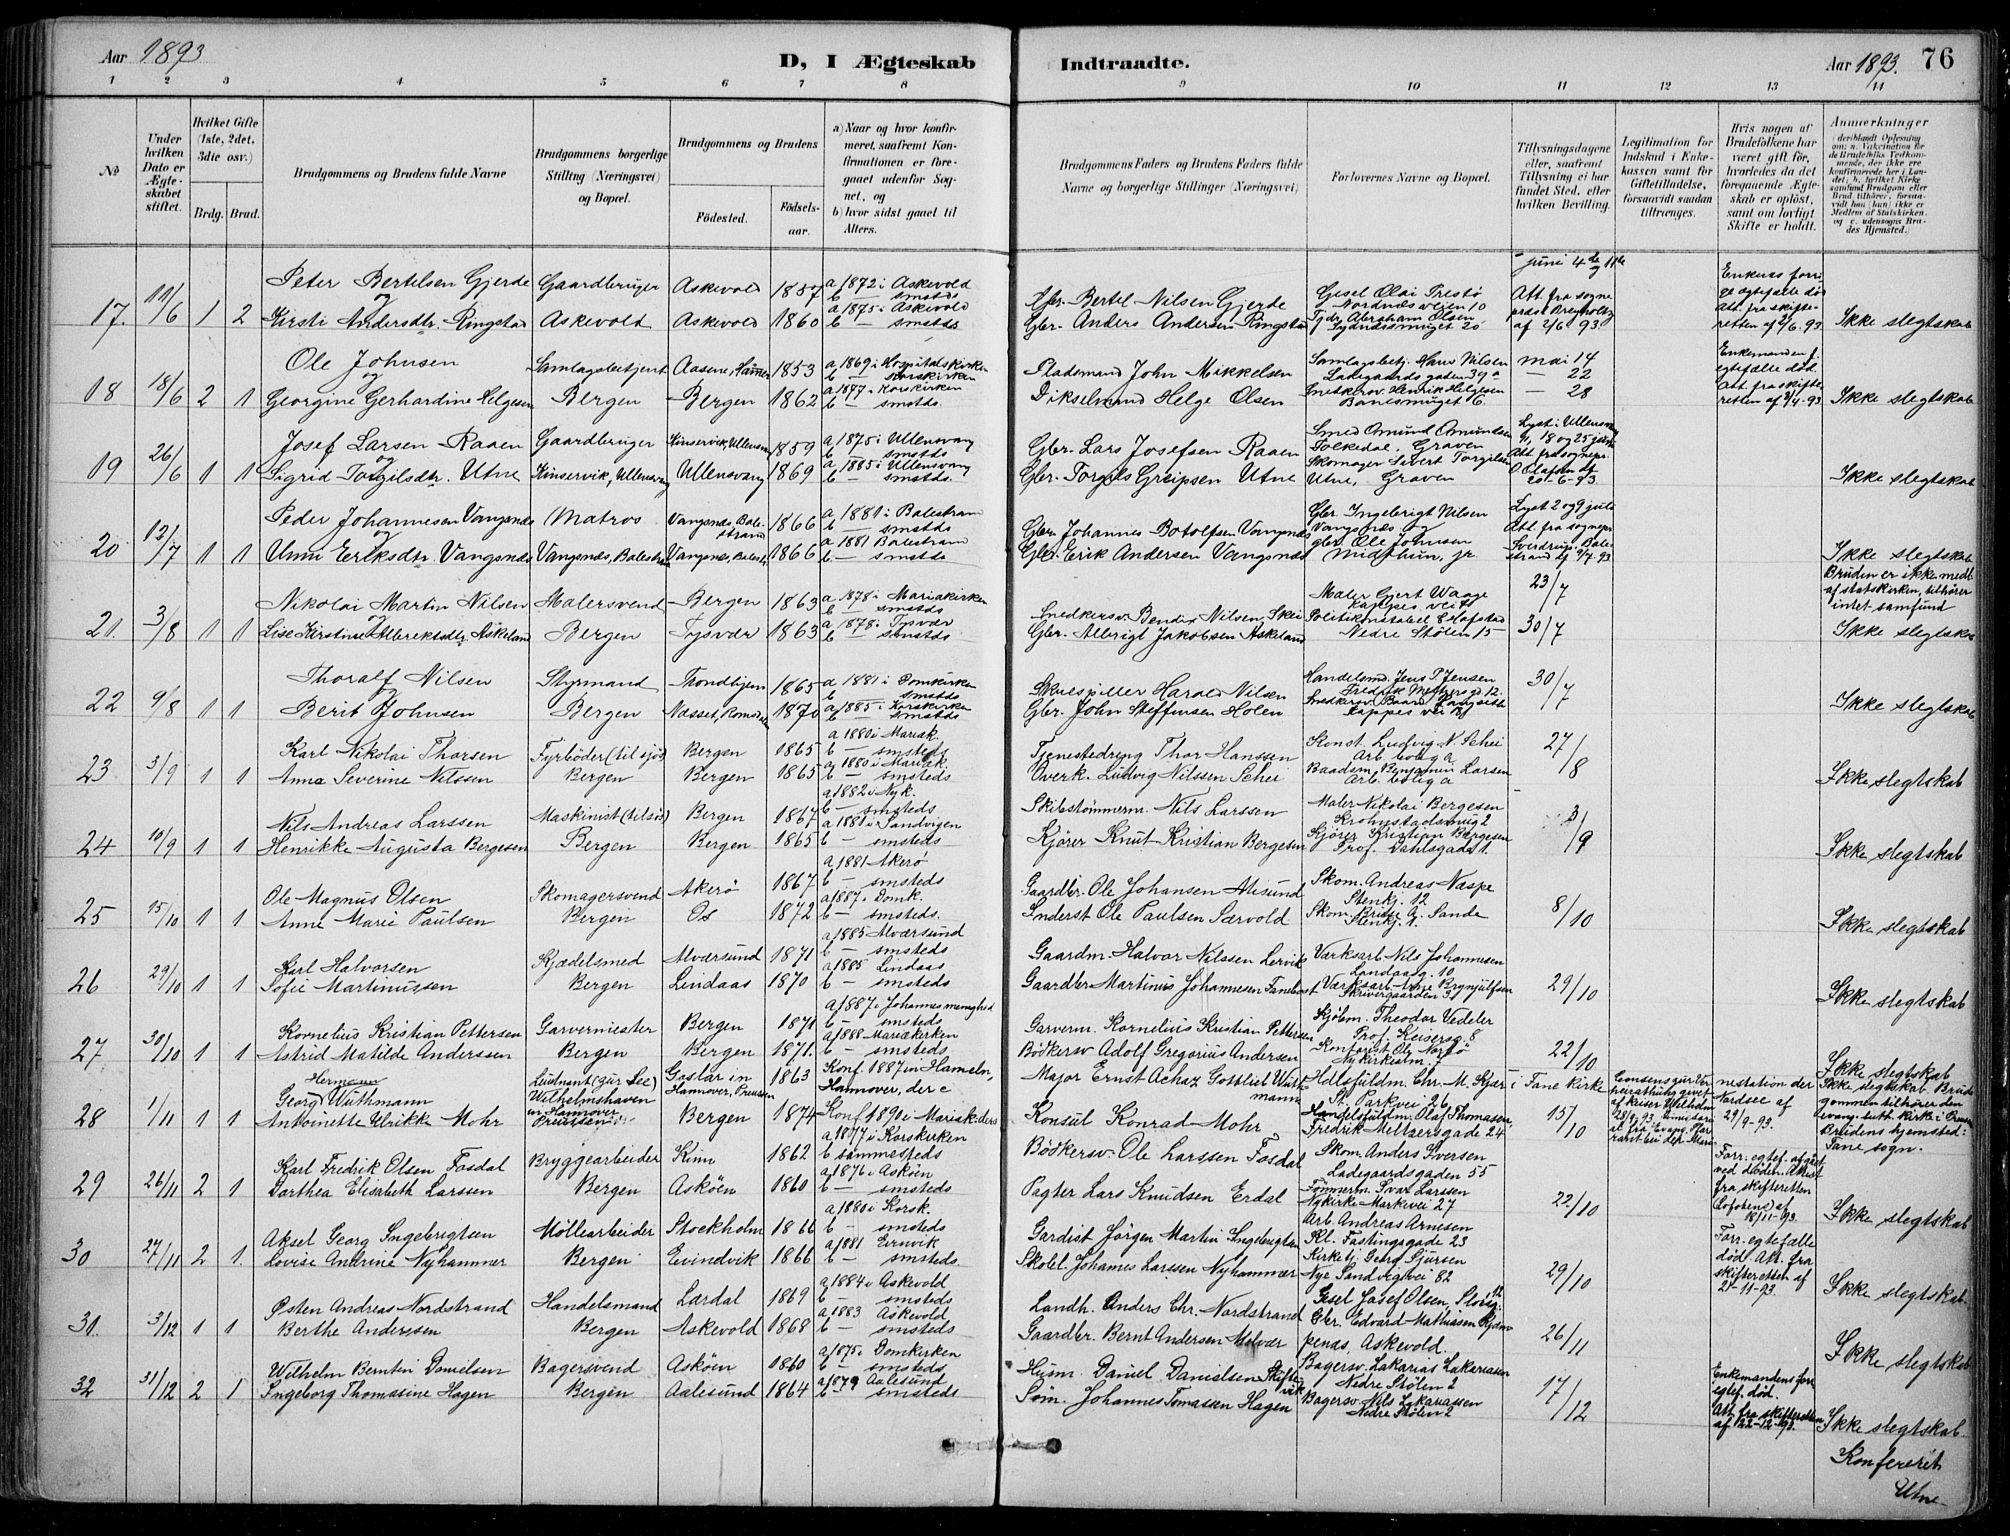 Aar 1893
D, I Ægteskab
Indtraadte.
Aar 1893. 76
1 2 3 4 5 6 7 8 9 10 11 12 13 14
No
Under hvilken Dato er Ægteskabet stiftet.
Hvilket Gifte (1ste, 2det, 3die osv.)
Brdg. Brud.
Brudgommens og Brudens fulde Navne
Brudgommens borgerlige Stilling (Næringsvei) og Bopæl.
Brudgommens og Brudens
Fødested.
Fødselsaar.
a) Naar og hvor konfirmeret, saafremt Konfirmationen er foregaaet udenfor Sognet, og
b) hvor sidst gaaet til Alters.
Brudgommens Faders og Brudens Faders fulde Navne og borgerlige Stillinger (Næringsvei)
Forlovernes Navne og Bopæl.
Tillysningsdagene eller, saafremt Tillysning ei har fundet Sted, efter hvilken Bevilling.
Legitimation for Indskud i Enkekassen samt for Giftetilladelse, forsaavidt saadan tiltrænges.
Hvis nogen af Brudefolkene har været gift før, hvorledes da det foregaaende Ægteskab er opløst, samt om lovligt Skifte er holdt.
Anmærkninger
17. 11/6 1 2 Peter Bertelsen Gjerde Gaardbruger Askevold 1857 a 1872 i Askevold b — smstds
og Kirsti Andersdtr. Ringstad Askevold Askevold 1860 a 1875 i Askevold b — smstds.
Gbr. Bertel Nilsen Gjerde
Gbr. Anders Andersen Ringstad
Nordnæsveien 10
juni 4de og 11te
Att. fra sogne
af 2/6 93
Ikke slegtskab
18 18/6 2 1 Ole Johnsen Samlagsbetjent Aasene, 1853 a 1869 i Hospitalskirken b — Korskirken
og Georgine Gerhardine Helgesen Bergen Bergen 1862 a 1877 i Korskirken b — smstds.
John Mikkelsen
Helge Olsen
Samlagsbetj. Hans Nilsen
Ladegaardsgaden 39a
Snedkersv. Henrik Helgesen
mai 14
— 22
— 28
Enkemandens f. egtefælle död.
Att. fra skifteretten af
Ikke slegtskab
19 26/6 1 1 Josef Larsen Raaen Gaardbruger Kinservik, Ullensv 1859 a 1875 i Ullensvang b — smstds
og Sigrid Torgilsdtr. Utne Kinservik, Ullensvang Ullensvang 1869 a 1885 i Ullensvang b — smstds.
Gbr. Lars Josefsen Raaen
Gbr. Torgils Greipsen Utne
Smed Amund Amundsen
Folkedal, Graven
Skomager Sivert Torgilsen
Utne, Graven
Lyst i Ullensvang
11, 18 og 25 juni
Att. fra sognepr.
Olafsen af
20-6-93.
Ikke slegtskab
20 12/7 1 1 Peder Johannesen Vangsnes Matros Vangsnæs, Balestrand 1866 a 1881 i Balestrand b — smstds
og Unni Eriksdtr. Vangsnæs Vangsnæs, Balestrand Vangsnæs, Balestr 1866 a 1881 Balestrand b — smstds
Gbr. Johannes Botolfsen Vangsnæs
Gbr. Erik Andersen Vangsnæs
Gbr. Ingebrigt Nilsen
Vangsnæs og
gbr. Ole Johnsen
Midthun, jr.
Lyst 2 og 9 juli
Att. fra sognepr
Sverdrup, Balestrand af 9/7 93
Ikke slegtskab
21. 3/8 1 1 Nikolai Martin Nilsen Malersvend Bergen 1863 a 1878 i Mariakirken b — smstds
og Lise Kirstine Albrektsdtr. Askeland Bergen Tysvær 1863 a 1878 i Tysvær b — smstds.
Snedkersv. Bendix Nilsen Skei
Gbr. Albrigt Jakobsen Askeland
Maler Gert Waage
Kappes veit
Politikonstabel E Hofstad
Nedre Stølen 15
23/7
30/7
Bruden er ikke medl. af statskirken, tilhører intet samfund
Ikke slegtskab
22 9/8 1 1 Thoralf Nilsen Styrmand Trondhjem 1865 a 1881 i Domkirken b — smstds
og Berit Johnsen Bergen Næsset, Romsdalen 1870 a 1885 i Korskirken b — smstds
Skuespiller Harald Nilsen
Gbr. John Steffensen Holen
Handelsmd. Jens P. Jensen
Fredrik Meltzersgd 12.
30/7
Ikke slegtskab
23 3/9 1 1 Karl Nikolai Thorsen Fyrbøder (til sjøs) Bergen 1865 a 1880 i Mariak. b — smsteds
Anna Severine Nilssen Bergen Bergen 1865 a 1880 i Mariak b — smsteds
Tjenestedreng Thor Hanssen
Overk. Ludvig Nilssen Schei
Konst. Ludvig N. Schei
Arb. bolig a
Baadsm. Benjamin Larsen
Arb. bolig a
27/8
Ikke slegtskab
24 10/9 1 1 Nils Andreas Larssen Maskinist (tilsjøs) Bergen 1867 a 1882 i Nyk. b — smsteds
Henrikke Augusta Bergesen Bergen Bergen 1865 a 1881 i Sandvigen b — smsteds
Skibstømmerm. Nils Larssen
Kjører Knut Kristian Bergesen
Maler Nikolai Bergesen
Kjører Kristian Bergesen
Prof. Dahlsgade 1.
3/9
Ikke slegtskab
25 15/10 1 1 Ole Magnus Olsen Skomagersvend Akerø 1867 a 1881 Akerø b — smsteds
Anne Marie Paulsen Bergen Os 1872 a 1887 i Domk. b — smsteds.
Gaardbr. Ole Johansen Misund
Inderst Ole Paulsen Særvold
Skom. Andreas Næspe
Stenkj. 12
8/10
Ikke slegtskab
26 29/10 1 1 Karl Halvorsen Kjædelsmed Alværsund 1871 a 1885 Alværsund b — smsteds
Sofie Martinussen Bergen Lindaas 1870 a 1885 Lindaas b — smsteds
Gaardm. Halvor Nilssen Lervik
Gaardbr Martinus Johannesen Fanebost
Værksarb Nils Johannesen
Landaasg. 10
Værksarb. Arne Brynjulfsen
Skrivergaarden 31
29/10
Ikke slegtskab
27 30/10 1 1 Kornelius Kristian Pettersen Garvermester Bergen 1871 a 1887 i Johannes menighed b — smsteds
Astrid Matilde Anderssen Bergen Bergen 1871. a 1888 Mariækirken b — smsteds
Garverm. Kornelius Kristian Pettersen
Bödkersv Adolf Gregorius Andersen
Kjölm. Theodor Vedeler
Prof. Keysersg. 8
22/10
Ikke slegtskab
28 1/11 1 1 Georg Hermann Wuthmann Lieutnant (zur See) Wilhelmshaven in Hannover Preussen Goslar in Hannover, Preusen 1863 Konf. 1887 in Hameln, Hannover, der e
Antoinette Ulrikke Mohr Bergen 1874 Konf 1890 i Mariak. ders
Major Ernst Achaz Gottlieb Wuthmann
Konsul Konrad Mohr
Hdlsfuldm. Chr. M. Kjær
Parkvei 26
Handelsfuldm. Olaf Thomassen,
Fredrik Meltzersgade 24
i Fane kirke
15/10
29/9-93.
Ikke slegtskab. Brudgommen tilhører den evang. luth. kirke i Preussen
Brudens hjemsted: Fane sogn.
29 26/11 2 1 Karl Fredrik Olsen Fosdal Bryggearbeider Kinn 1862 a 1877 i Korskirken b sammesteds
Dorthea Elisabeth Larssen Bergen Askøen 1860 a 1876 i Askøen b — smsteds
Bödkersv. Ole Larssen Fosdal
Pagter Lars Knudsen Erdal
Skom Anders Iversen
Ladegaardsgaden 55
Tømmerm. Ivar Larssen
Nykirke Markevei 27
22/10
Forr. egtef. afgået ved døden. Attest fra skifteretten (Lofoten) af 18/11-93.
Ikke slegtskab
30 27/11 2 1. Aksel Georg Ingebrigtsen Møllearbeider Stockholm 1866 a 1880 i Korsk. b — smsteds
Lovise Andrine Nyhammer Bergen Evindvik 1866 a 1881 Eivindvik b — smsteds.
Gardist Jörgen Martin Ingebrigtsen
Skolel. Johannes Larssen Nyhammer
Arb. Andreas Arnesen
Kl. Fastingsgade 23
Kirketj. Georg Sjursen
Nye Sandvigsvei 82
29/10
Forr. egtefælle død Att. fra skifteretten af 21-11-93.
Ikke slegtskab.
31. 3/12 1 1 Østen Andreas Nordstrand Handelsmand Lærdal 1869 a 1884 i Askevold b — smsteds
Berthe Anderssen Bergen Askevold 1868 a 1883 Askevold b — smsteds
Landh. Anders Chr. Nordstrand
Gaardbr. Bernt Andersen Melvær
Gbr. Edvard Mathiasen
Askevold.
26/11
Ikke slegtskab
32 31/12 2 1 Wilhelm Berntin Danielsen Bagersvend Askøen 1860 a 1875 i Domkirken b — smsteds
Ingeborg Thomasine Hagen Bergen Aalesund 1864 a 1879 Aalesund b — smsteds
Husm. Daniel Danielsen
Søm. Johannes Tomassen Hagen
Bagersv. Zakarias Zakariassen
Nedre Stølen 2
Bagersv Nils Zakariassen
Nedre Stølen 2
17/12
Enkemandens forr. egtef. död.
Att. fra skifteretten af 22-12-93.
Ikke slegtskab.
Konfereret
Utne